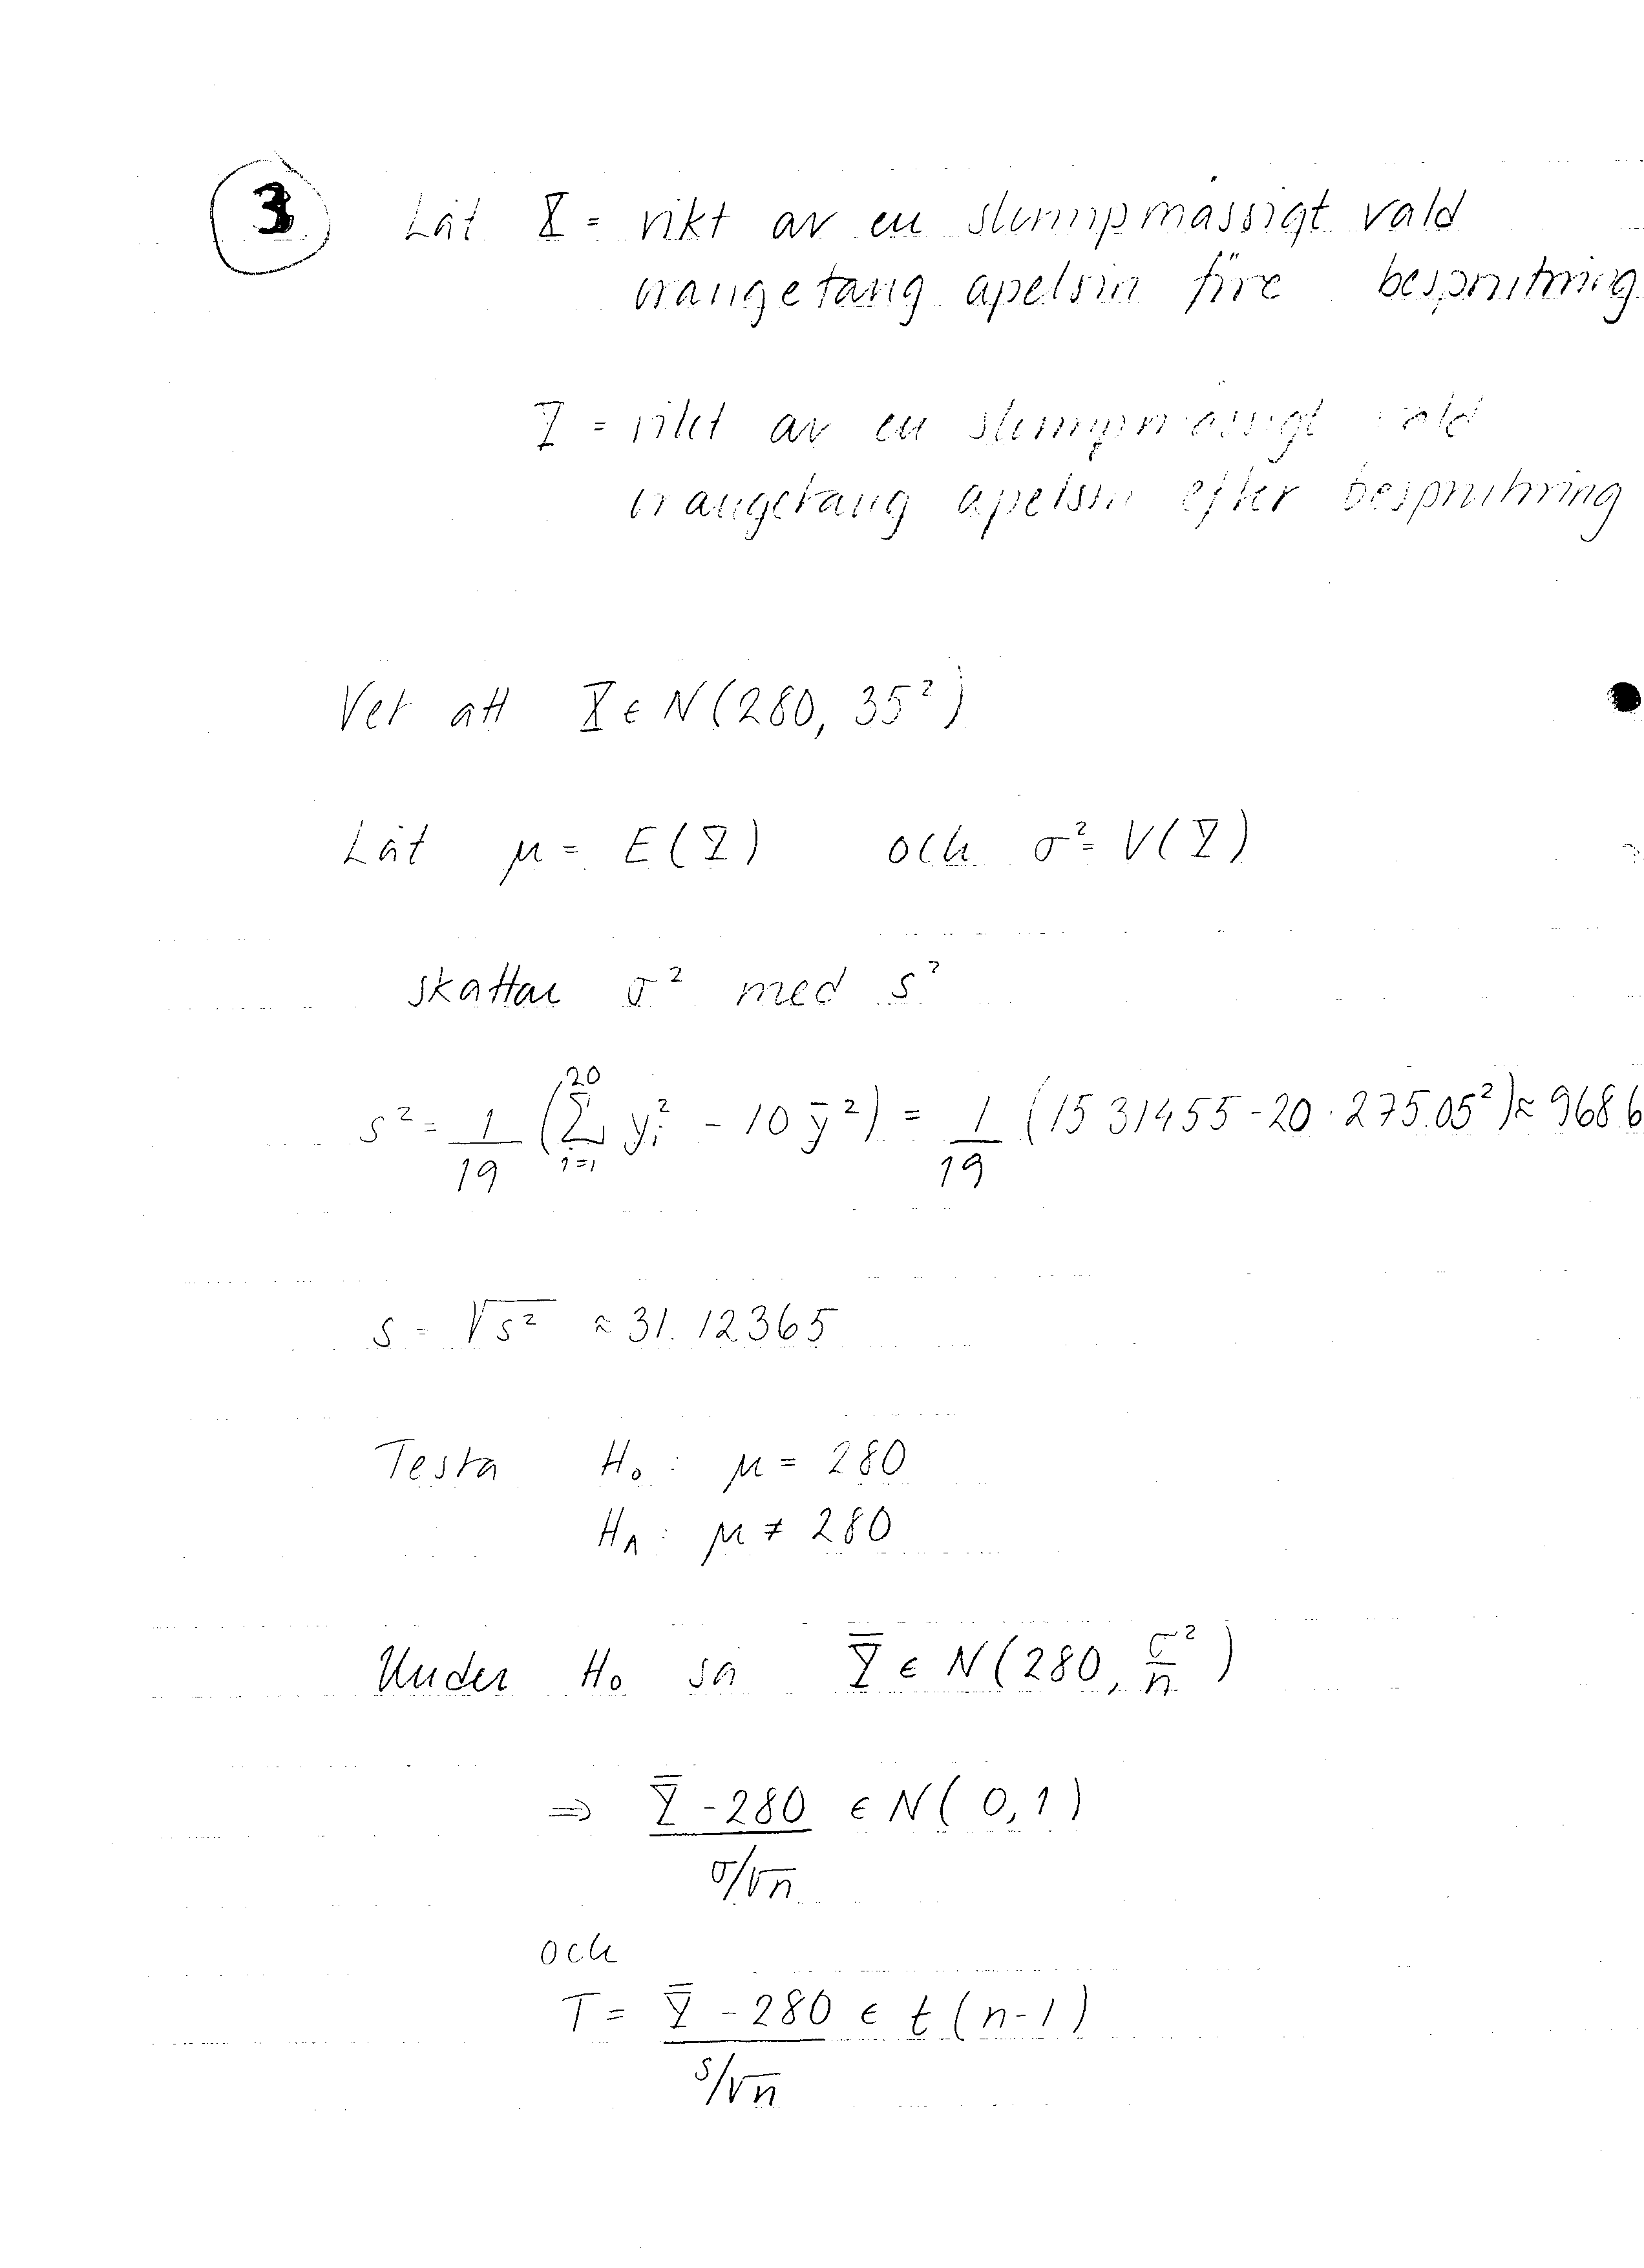 3 Låt X = vikt av en slumpmässigt vald
orangetang apelsin före besprutning
Y = vikt av en slumpmässigt vald
orangetang apelsin efter besprutning
Vet att X ∈ N(280, 35²)
Låt μ = E(Y) och σ² = V(Y)
skattar σ² med s²
s² = 1/19 (∑_{i=1}^{20} y_i² - 10 ȳ²) = 1/19 (1531455 - 20 · 275.05²) ≈ 968.6
s = √s² ≈ 31.12365
Testa H₀ : μ = 280
H_A : μ ≠ 280
Under H₀ så Ȳ ∈ N(280, σ²/n)
⇒ (Ȳ - 280)/(σ/√n) ∈ N(0,1)
och
T = (Ȳ - 280)/(s/√n) ∈ t(n-1)